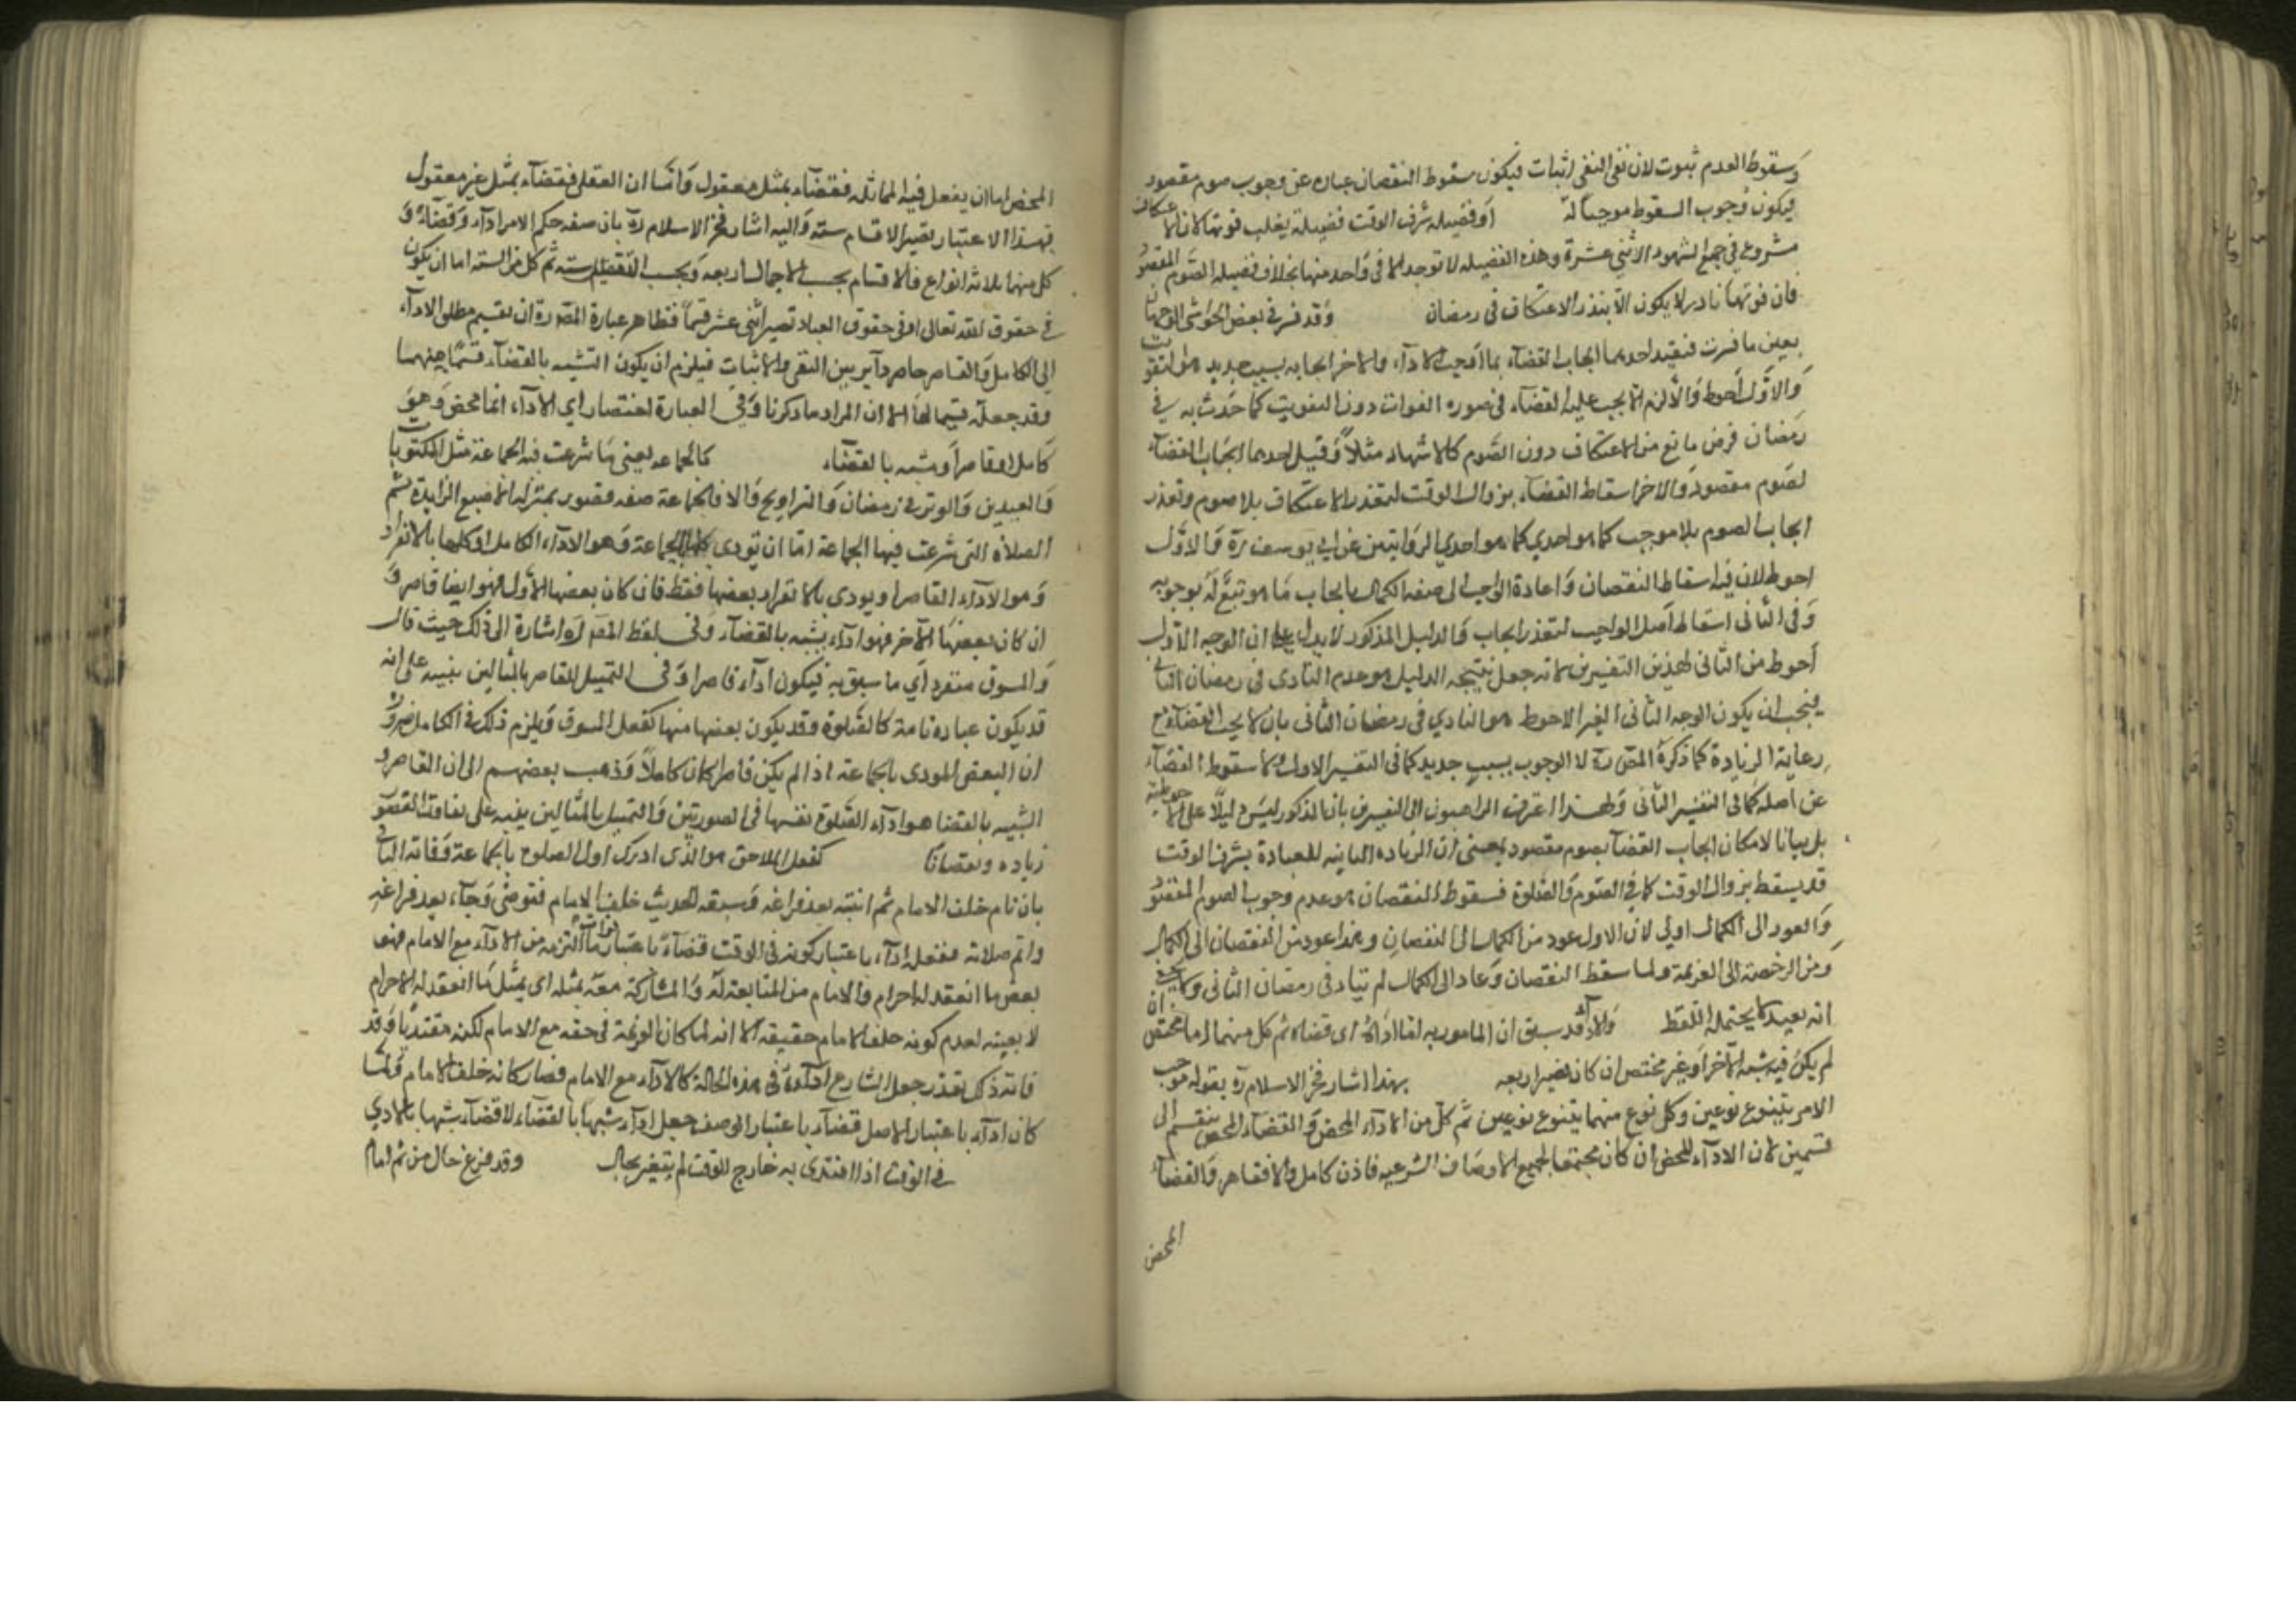 وسقوط العدم ثبوت لان نفى النفى اثبات فيكون سقوط النقصان عبارة عن وجوب صوم مقصود
فيكون وجوب السقوط موجبا له او فضيله شرف الوقت فضيلة يغلب فوتها لان الاعتكاف
مشروع في جميع الشهور الاثنى عشرة وهذه الفضيله لا توجد الا فى واحد منها بخلاف فضيله الصوم المقصود
فان فوتها نادر لا يكون الا بنذر الاعتكاف فى رمضان وقد فسر فى بعض الحواشى الوجهان
بعين ما فسرت فنقيد احدهما ايجاب القضاء بما اوجب الاداء والاخر ايجابه بسبب جديد هو التفويت
والاول احوط والا لزم ان لا يجب عليه القضاء فى صوره الفوات دون التفويت كما حدث به في
رمضان مرض مانع من الاعتكاف دون الصوم كالاسهال مثلا وقيل احدهما ايجاب القضاء
لصوم مقصود والاخر اسقاط القضاء بزوال الوقت لتعذر الاعتكاف بلا صوم وتعذر
ايجاب الصوم بلا موجب كما هو احدي كما هو احدي الروايتين عن ابي يوسف ره والاول
احوط لان فيه اسقاط النقصان واعادة الواجب الى صفه الكمال بايجاب ما هو تبع له بوجوبه
وفى الثانى اسقاط اصل الواجب لتعذر ايجاب والدليل المذكور لا يدل على ان الوجه الاول
احوط من الثانى لهذين التفسيرين لانه جعل نتيجه الدليل هو عدم التادى فى رمضان الثانى
فيجب ان يكون الوجه الثانى الغير الاحوط هو التادي فى رمضان الثانى بان لا يجب القضاء مع
رعاية الزيادة كما ذكره المص ره لا الوجوب بسبب جديد كما فى التفسير الاول ولا سقوط القضاء
عن اصله كما فى التفسير الثانى ولهذا اعترف الذاهبون الى التفسيرين بان المذكور ليس دليلا على الاحوطية
بل بيانا لامكان ايجاب القضاء بصوم مقصود يعنى ان الزياده الثابته للعبادة بشرف الوقت
قد يسقط بزوال الوقت كما في الصوم والصلوة فسقوط النقصان هو عدم وجوب الصوم المقصود
والعود الى الكمال اولى لان الاول عود من الكمال الى النقصان وهذا عود من النقصان الى الكمال
ومن الرخصة الى العزيمة ولما سقط النقصان وعاد الى الكمال لم يتاد فى رمضان الثانى ولا
انه بعيد لا يحتمله اللفظ والاداء قد سبق ان المامور به اما اداء او قضاء ثم كل منهما اما محض ان
لم يكن فيه شبه الاخر او غير محض ان كان فيصير اربعه بهذا اشار فخر الاسلام ره بقوله موجب
الامر يتنوع نوعين وكل نوع منهما يتنوع نوعين ثم كل من الاداء المحض والقضاء المحض ينقسم الى
قسمين لان الاداء المحض ان كان مجتمعا لجميع الاوصاف الشرعيه فاداء كامل والا فقاصر والقضاء
المحض
المحض اما ان يعقل فيه المماثله فقضاء بمثل معقول واما ان لا يعقل فقضاء بمثل غير معقول
فبهذا الاعتبار تصير الاقسام سته واليه اشار فخر الاسلام ره بان صفه حكم الامر اداء وقضاء و
كل منهما ثلاثه انواع فالاقسام بحسب الاجمال اربعه وبحسب التفصيل سته ثم كل من السته اما ان يكون
في حقوق الله تعالى او فى حقوق العباد تصير اثنى عشر قسما فظاهر عبارة المص ره ان تقسيم مطلق الاداء
الى الكامل والقاصر حاصر دآير بين النفى والاثبات فيلزم ان يكون الشبيه بالقضاء قسما منهما
وقد جعله قسيما لهما الا ان المراد ما ذكرنا وفى العبارة اختصار اي الاداء اما محض وهو
كامل او قاصر او شبه بالقضاء كالجماعه يعنى ما شرعت فيه الجماعة مثل المكتوبات
والعيدين والوتر فى رمضان والتراويح والا فالجماعة صفه قصور بمنزلة الاصبع الزايدة ثم
الصلاة التى شرعت فيها الجماعة اما ان تودى كلها بالجماعة وهو الاداء الكامل او كلها بالانفراد
وهو الاداء القاصر او يودى بالانفراد بعضها فقط فان كان بعضها الاول فهو ايضا قاصر و
ان كان بعضها الآخر فهو اداء يشبه بالقضاء وفى لفظ المص ره اشارة الى ذلك حيث قال
والمسبوق منفرد اي ما سبق به فيكون اداء قاصرا وفى التمثيل للقاصر بالمثالين تنبيه على انه
قد يكون عباده تامة كالصلوة وقد يكون بعضها منها كفعل المسبوق ويلزم ذلك فى الكامل ضرورة
ان البعض المودى بالجماعة اذا لم يكن قاصرا كان كاملا وذهب بعضهم الى ان القاصر و
الشبيه بالقضا هو اداء الصلوة نفسها فى الصورتين والتمثيل بالمثالين ينبه على تفاوت القصور
زياده ونقصانا كفعل اللاحق هو الذى ادرك اول الصلوة بالجماعة وفاته الباقى
بان نام خلف الامام ثم انتبه بعد فراغه او سبقه الحدث خلف الامام فتوضى وجاء بعد فراغه
واتم صلاته ففعله اداء باعتبار كونه فى الوقت قضاء باعتبار فوات ما التزمه من الاداء مع الامام فهو
يقضى ما انعقد له احرام الامام من المتابعة له والمشاركة معه بمثله اى بمثل ما انعقد له الاحرام
لا بعينه لعدم كونه خلف الامام حقيقه الا انه لما كان العزيمة فى حقه مع الامام لكنه مقتديا وقد
فاته ذلك بعذر جعل الشارع اداءه فى هذه الحالة كالاداء مع الامام فصار كانه خلف الامام ولما
كان اداء باعتبار الاصل قضاء باعتبار الوصف جعل اداء شبيها بالقضاء لا قضاء شبيها بالادا
في الوقت اذا اقتدى به خارج الوقت لم يتغير بحال وقد فرغ حال من ثم امام